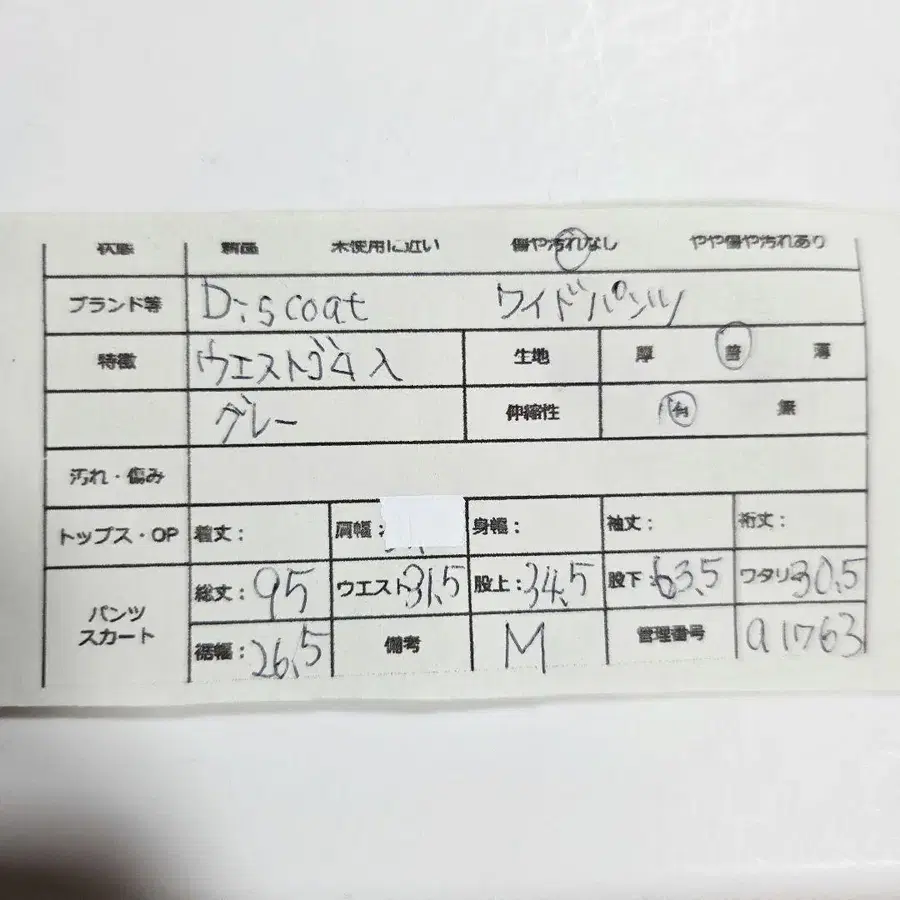 状態 新品 未使用に近い 傷や汚れなし やや傷や汚れあり
ブランド等 Discoat ワイドパンツ
特徴 ウエストゴム入 生地 厚 普 薄
グレー 伸縮性 有 無
汚れ・傷み
トップス・OP 着丈: 肩幅: 身幅: 袖丈: 裄丈:
パンツ スカート 総丈:95 ウエスト31.5 股上:34.5 股下:63.5 ワタリ:30.5
裾幅:26.5 備考 M 管理番号 a1763